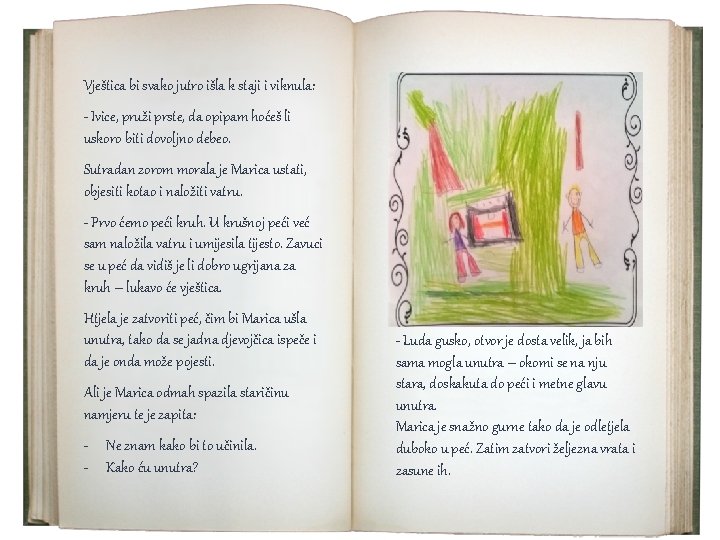 Vještica bi svako jutro išla k staji i viknula:
- Ivice, pruži prste, da opipam hoćeš li
uskoro biti dovoljno debeo.
Sutradan zorom morala je Marica ustati,
objesiti kotao i naložiti vatru.
- Prvo ćemo peći kruh. U krušnoj peći već
sam naložila vatru i umijesila tijesto. Zavuci
se u peć da vidiš je li dobro ugrijana za
kruh – lukavo će vještica.
Htjela je zatvoriti peć, čim bi Marica ušla
unutra, tako da se jadna djevojčica ispeče i
da je onda može pojesti.
Ali je Marica odmah spazila staričinu
namjeru te je zapita:
- Ne znam kako bi to učinila.
- Kako ću unutra?
- Luda gusko, otvor je dosta velik, ja bih
sama mogla unutra – okomi se na nju
stara, doskakuta do peći i metne glavu
unutra.
Marica je snažno gurne tako da je odletjela
duboko u peć. Zatim zatvori željezna vrata i
zasune ih.